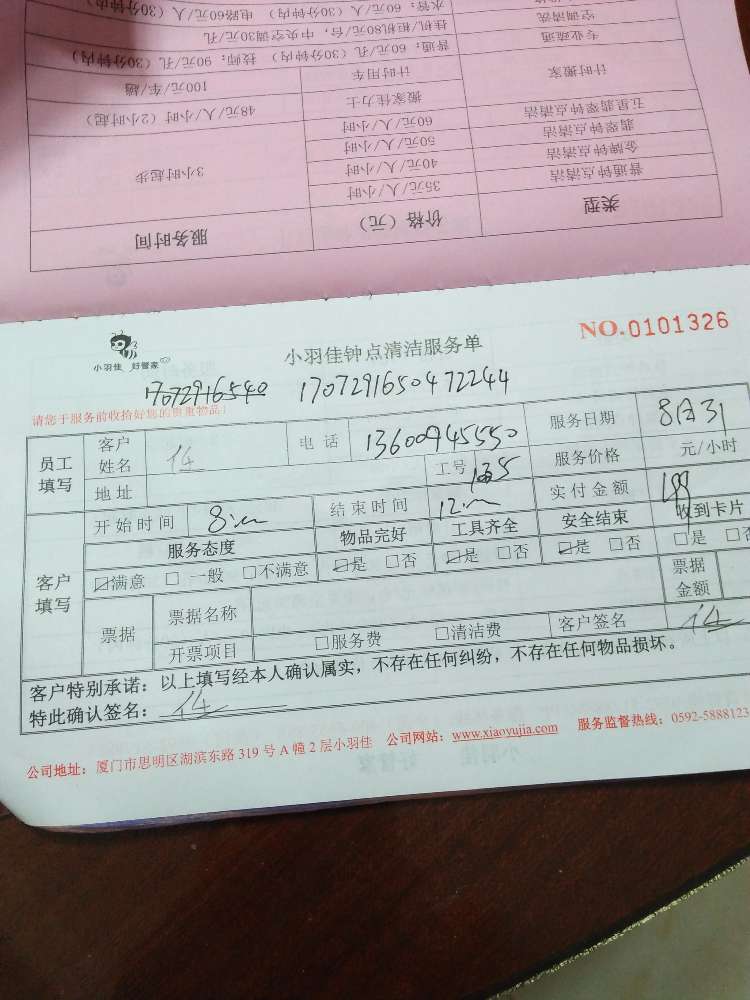 水管：60元/人（30分钟内） 电路60元/人（30分钟内）
空调清洗 挂机/柜机80元/台，中央空调30元/孔
专业疏通 普通：60元/孔（30分钟内） 技师：90元/孔（30分钟内
计时搬家 计时用车 100元/车/趟
搬家佳力士 48元/人/小时（2小时起）
五星翡翠钟点清洁 60元/人/小时
翡翠钟点清洁 50元/人/小时
金牌钟点清洁 40元/人/小时 3小时起步
普通钟点清洁 35元/人/小时
类型 价格（元） 服务时间
小羽佳 好管家
小羽佳钟点清洁服务单
NO.0101326
17072916540 1707291650472244
请您于服务前收拾好您的贵重物品！
员工填写 客户姓名 电话 13600945550 服务日期 8月31
地址 工号 服务价格 元/小时
客户填写 开始时间 8: 结束时间 12: 实付金额 199
服务态度 物品完好 工具齐全 安全结束 收到卡片
☑满意 □一般 □不满意 ☑是 □否 ☑是 □否 ☑是 □否 □是 □否
票据 票据名称 票据金额
开票项目 □服务费 □清洁费 客户签名
客户特别承诺：以上填写经本人确认属实，不存在任何纠纷，不存在任何物品损坏。
特此确认签名：
公司地址：厦门市思明区湖滨东路319号A幢2层小羽佳 公司网站：www.xiaoyujia.com 服务监督热线：0592-5888123